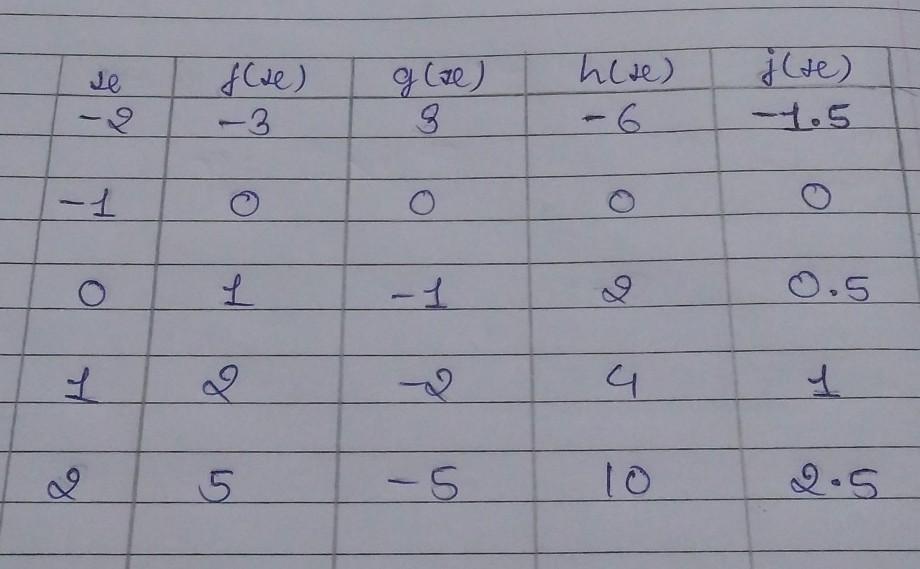 x f(x) g(x) h(x) j(x)
-2 -3 3 -6 -1.5
-1 0 0 0 0
0 1 -1 2 0.5
1 2 -2 4 1
2 5 -5 10 2.5